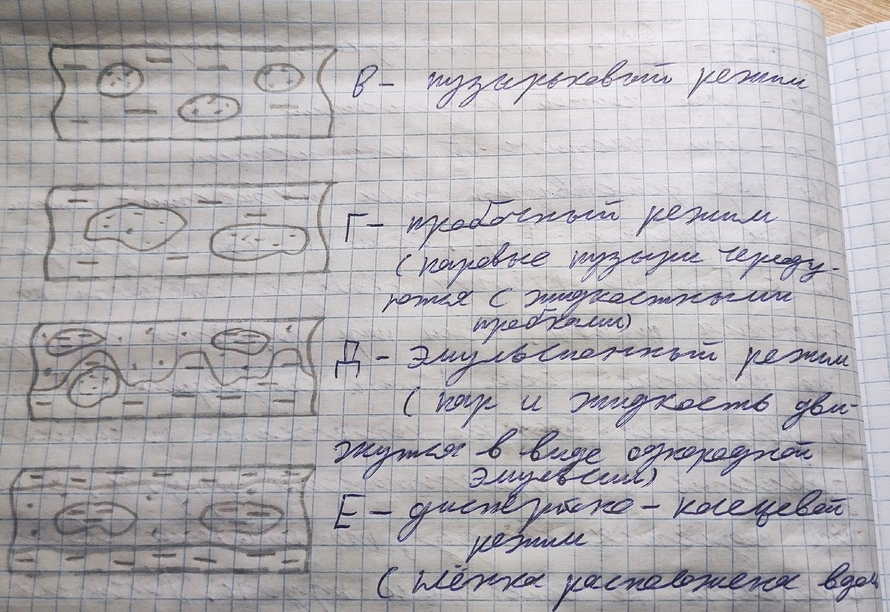 В – пузырьковый режим
Г – пробочный режим
(паровые пузыри череду-
ются с жидкостными
пробками)
Д – эмульсионный режим
(пар и жидкость дви-
жутся в виде однородной
эмульсии)
Е – дисперсно-кольцевой
режим
(плёнка расположена вдол